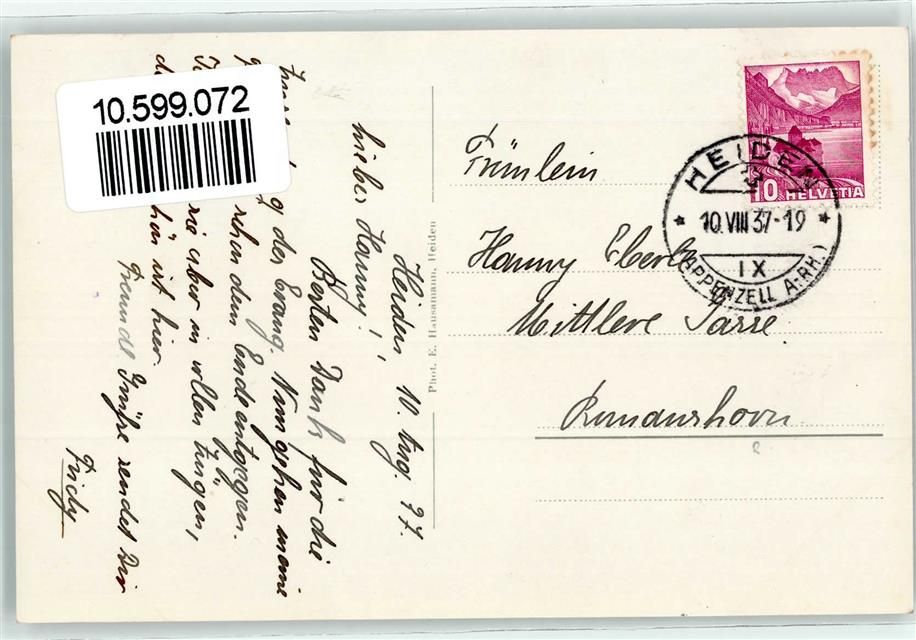 10.599.072
Heiden, 10. Aug. 37.
Liebes Hanny!
Besten Dank für die
des Evang. Nun gehen meine
dem Ende entgegen.
aber in vollen Zügen,
ist hier.
Freundl. Grüsse sendet Dir
Fridy
Phot. E. Hausamann, Heiden
Fräulein
Hanny Eberle
Mittlere Gasse
Romanshorn
10 HELVETIA
HEIDEN
10.VIII.37-19
IX
(APPENZELL A.RH.)